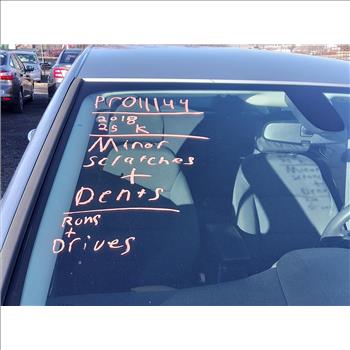 PROIII44
2018
25 K
Minor
sclarches
+
Dents
Runs
+
Drives